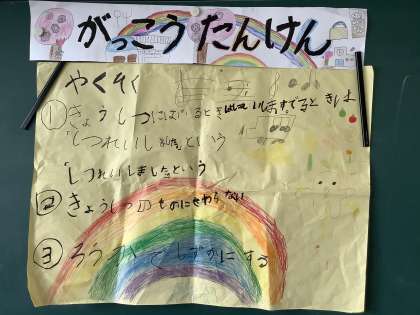 がっこうたんけん
やくそく
① きょうしつにはいるときはしつれいしますでるときは
「しつれいします」という
「しつれいしました」という
② きょうしつのものにさわらない
③ ろうかでしずかにする